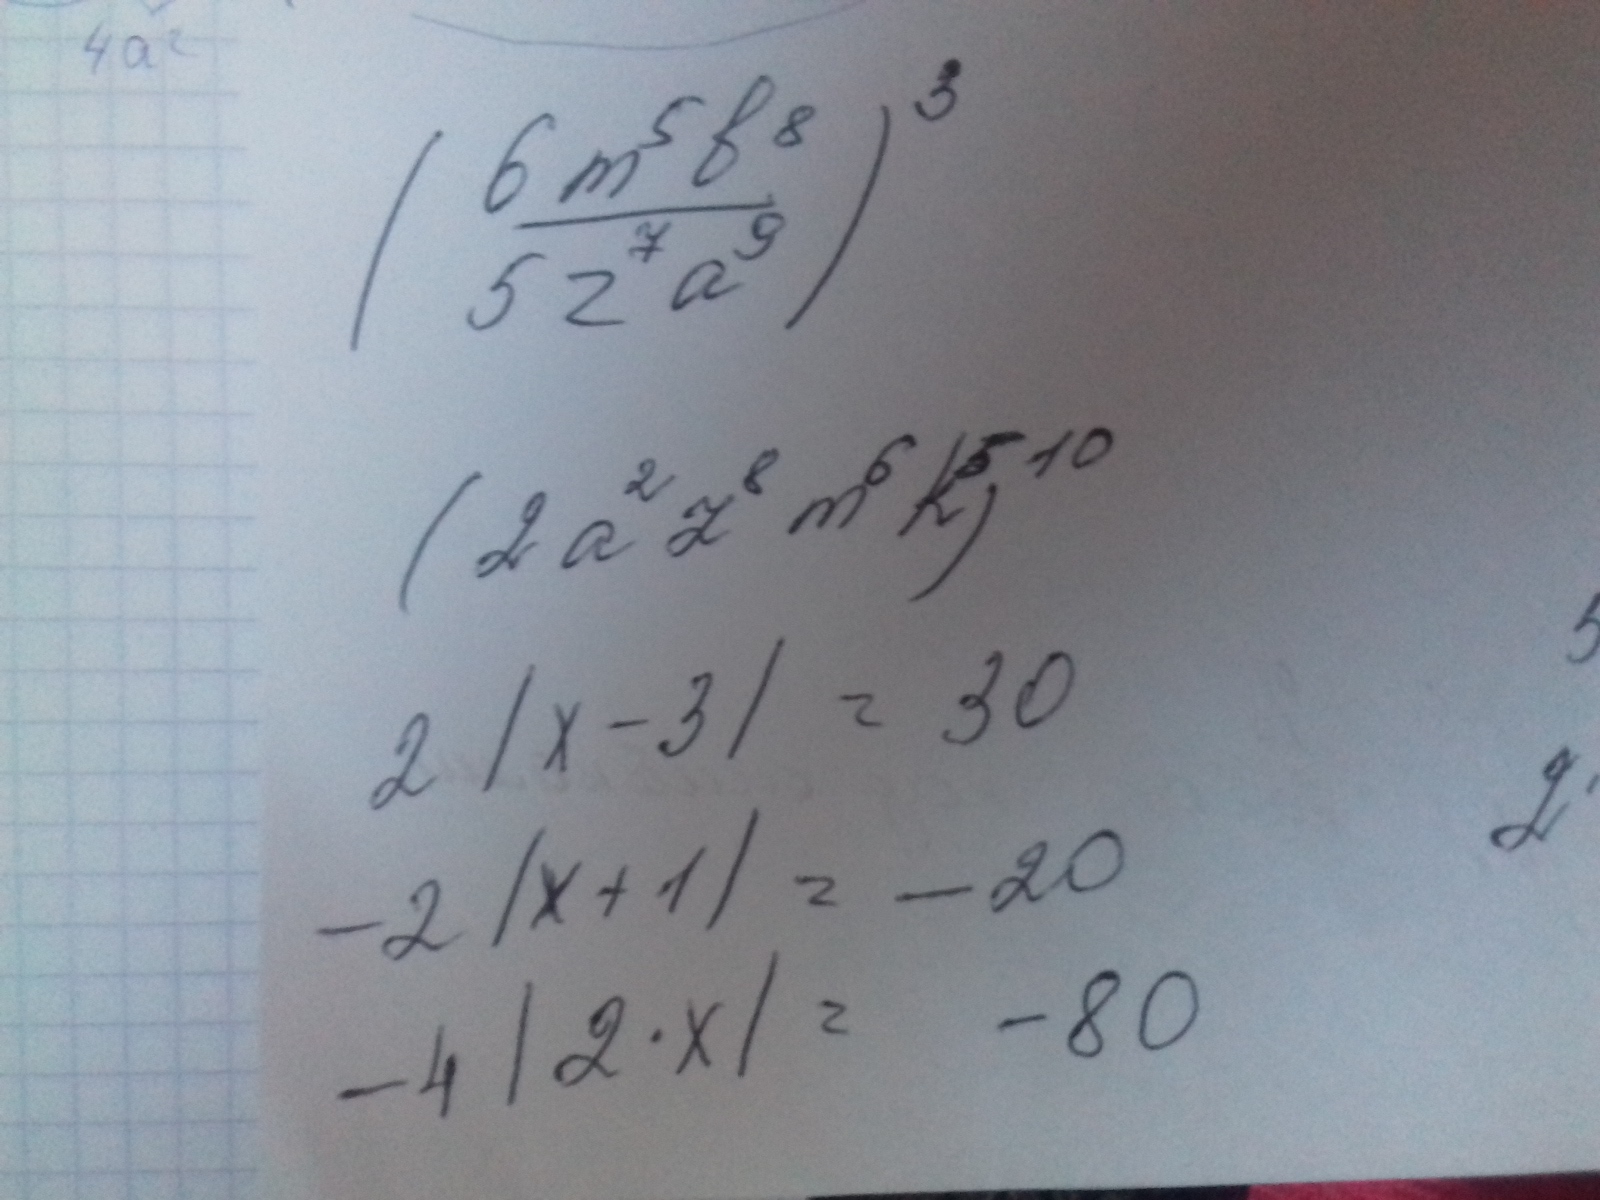 4a²
(6m⁵b⁸ / 5z⁷a⁹)³
(2a²z⁸m⁶k⁵)¹⁰
2|x-3| = 30
-2|x+1| = -20
-4|2·x| = -80
5
2